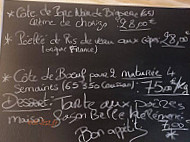 * Côte de Porc Noir de Bigorre (65)
crème de chorizo 28,00€
* Poêlée de Ris de veau aux cèpes 28,00€
(origine France)
* Côte de Boeuf pour 2 maturée 4
Semaines (65 € 350 75,00€/Kg
Dessert: Tarte aux poires
maison, façon Belle Hélène
Bon appétit